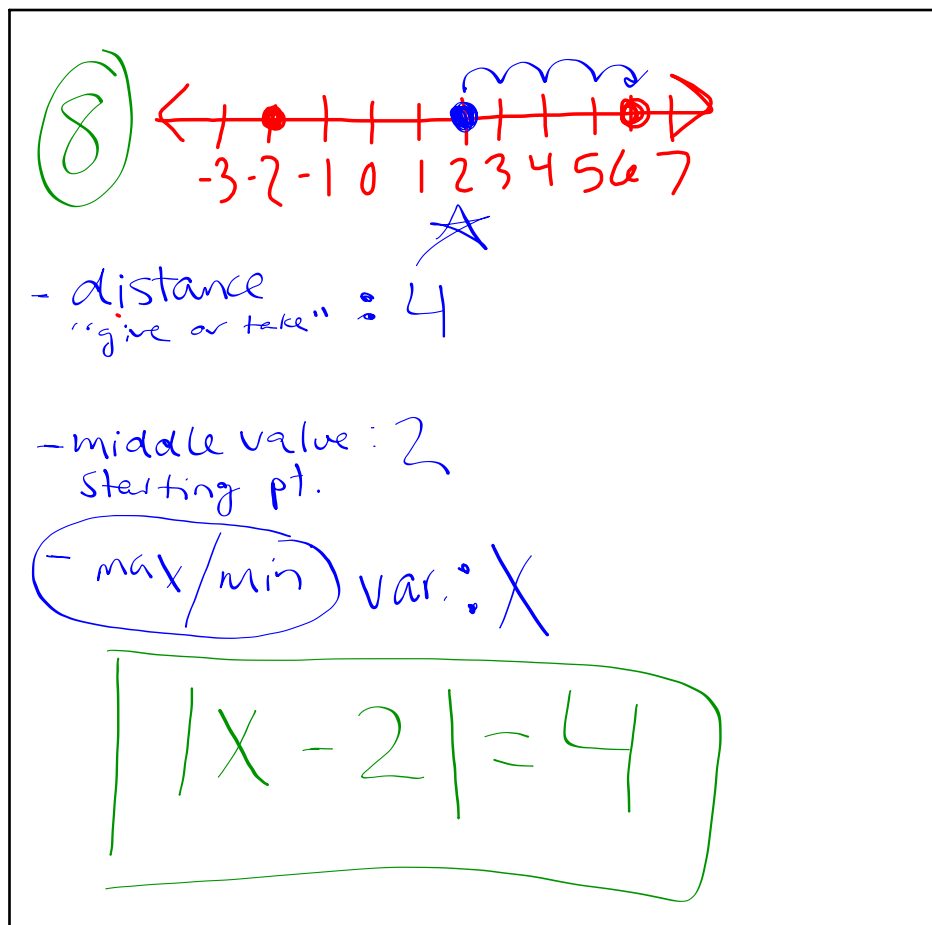 8
-3 -2 -1 0 1 2 3 4 5 6 7
- distance : 4
"give or take"
- middle value : 2
starting pt.
- max/min var. : X
|x - 2| = 4